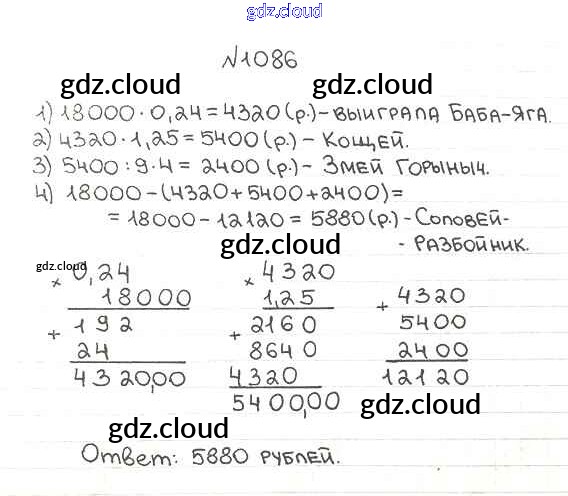 gdz.cloud
№1086
gdz.cloud gdz.cloud
1) 18000 · 0,24 = 4320 (р.) - ВЫИГРАЛА БАБА-ЯГА.
2) 4320 · 1,25 = 5400 (р.) - КОЩЕЙ.
3) 5400 : 9 · 4 = 2400 (р.) - ЗМЕЙ ГОРЫНЫЧ.
4) 18000 - (4320 + 5400 + 2400) =
= 18000 - 12120 = 5880 (р.) - СОЛОВЕЙ-
- РАЗБОЙНИК.
gdz.cloud
gdz.cloud
× 0,24
18000
+ 192
24
4320,00
× 4320
1,25
+ 2160
8640
4320
5400,00
+ 4320
5400
2400
12120
gdz.cloud
gdz.cloud
Ответ: 5880 РУБЛЕЙ.